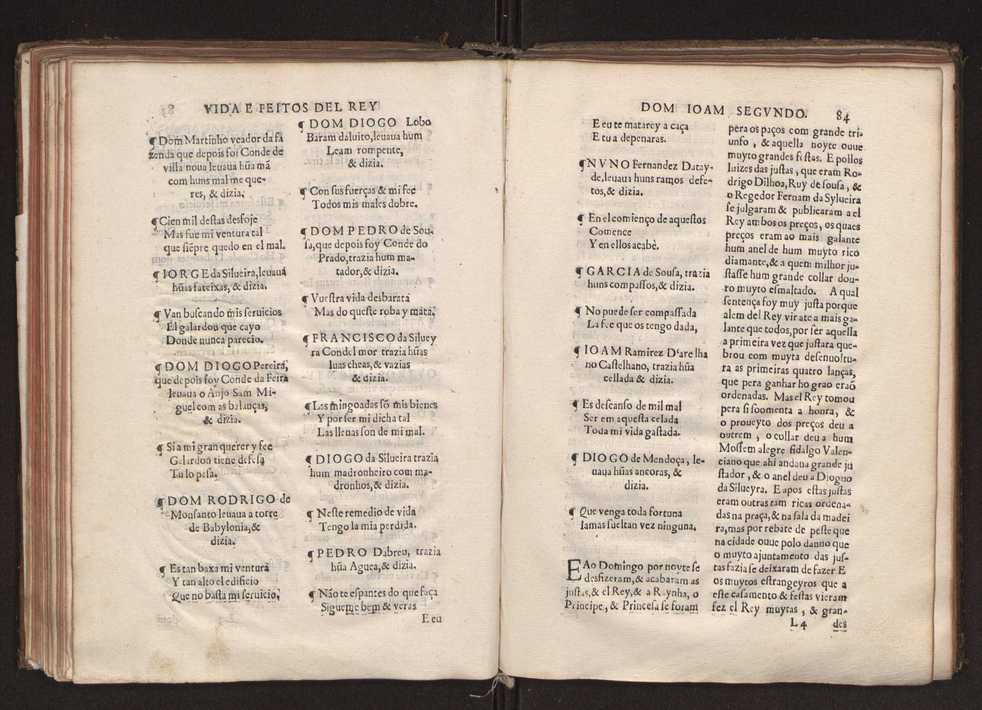 VIDA E FEITOS DEL REY
¶ Dom Martinho veador da fa
zenda que depois foi Conde de
villa noua leuaua hũa mã
com huns mal me que-
res, & dizia.
¶ Cien mil destas desfoje
Mas fue mi ventura tal
que siẽpre quedo en el mal.
¶ IORGE da Silueira, leuaua
hũas fateixas, & dizia.
¶ Van buscando mis seruicios
El galardon que cayo
Donde nunca parecio.
¶ DOM DIOGO Pereira,
que depois foy Conde da Feira
leuaua o Anjo Sam Mi-
guel com as balanças,
& dizia.
¶ Si a mi gran querer y fee
Galardon tiene defesa
Tu lo pesa.
¶ DOM RODRIGO de
Monsanto leuaua a torre
de Babylonia, &
dizia.
¶ Es tan baxa mi ventura
Y tan alto el edificio
Que no basta mi seruicio.
¶ DOM DIOGO Lobo
Baram daluito, leuaua hum
Leam rompente,
& dizia.
¶ Con sus fuerças & mi fee
Todos mis males dobre.
¶ DOM PEDRO de Sou-
sa, que depois foy Conde do
Prado, trazia hum ma-
tador, & dizia.
¶ Vuestra vida desbarata
Mas do queste roba y mata.
¶ FRANCISCO da Siluey
ra Condel mor trazia hũas
luas cheas, & vazias
& dizia.
¶ Las mingoadas sõ mis bienes
Y por ser mi dicha tal
Las llenas son de mi mal.
¶ DIOGO da Silueira trazia
hum madronheiro com ma-
dronhos, & dizia.
¶ Neste remedio de vida
Tengo la mia perdida.
¶ PEDRO Dabreu, trazia
hũa Aguea, & dizia.
¶ Não te espantes do que faça
Sigueme bem & veras
E eu
DOM IOAM SEGVNDO. 84
E eu te matarey a caça
E tu a depenaras.
¶ NVNO Fernandez Datay-
de, leuaua huns ramos dese-
tos, & dizia.
¶ En el comienço de aquestos
Comence
Y en ellos acabè.
¶ GARCIA de Sousa, trazia
huns compassos, & dizia.
¶ No puede ser compassada
La fee que os tengo dada,
¶ IOAM Ramirez Darelha
no Castelhano, trazia hũa
cellada & dizia.
¶ Es descanso de mil mal
Ser em aquesta celada
Toda mi vida gastada.
¶ DIOGO de Mendoça, le-
uaua hũas ancoras, &
dizia.
¶ Que venga toda fortuna
Iamas sueltan vez ninguna.
E Ao Domingo por noyte se
desfizeram, & acabaram as
justas, & el Rey, & a Raynha, o
Principe, & Princesa se foram
pera os paços com grande tri-
unfo, & aquella noyte ouue
muyto grandes festas. E pollos
Iuizes das justas, que eram Ro-
drigo Dilhoa, Ruy de sousa, &
o Regedor Fernam da Sylueira
se julgaram & publicaram a el
Rey ambos os preços, os quaes
preços eram ao mais galante
hum anel de hum muyto rico
diamante, & a quem milhor ju-
stasse hum grande collar dou-
ro muyto esmaltado. A qual
sentença foy muy justa porque
alem del Rey vir ate a mais ga-
lante que todos, por ser aquella
a primeira vez que justara que-
brou com muyta desenuoltu-
ra as primeiras quatro lanças,
que pera ganhar ho grao eraõ
ordenadas. Mas el Rey tomou
pera si soomenta a honra, &
o proueyto dos preços deu a
outrem, o collar deu a hum
Mossem alegre fidalgo Valen-
ciano que ahi andaua grande ju
stador, & o anel deu a Dioguo
da Silueyra. E apos estas justas
eram outras tam ricas ordena-
das na praça, & na sala da madei
ra, mas por rebate de peste que
na cidade ouue polo danno que
o muyto ajuntamento das jus-
tas fazia se deixaram de fazer. E
os muytos estrangeyros que a
este casamento & festas vieram
fez el Rey muytas, & gran-
L4 des